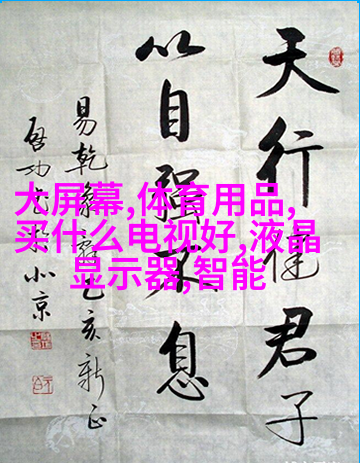 天行健君子
以自强不息
易乾乙亥新正
启功书於北京
大屏幕,体育用品,
买什么电视好,液晶
显示器,智能